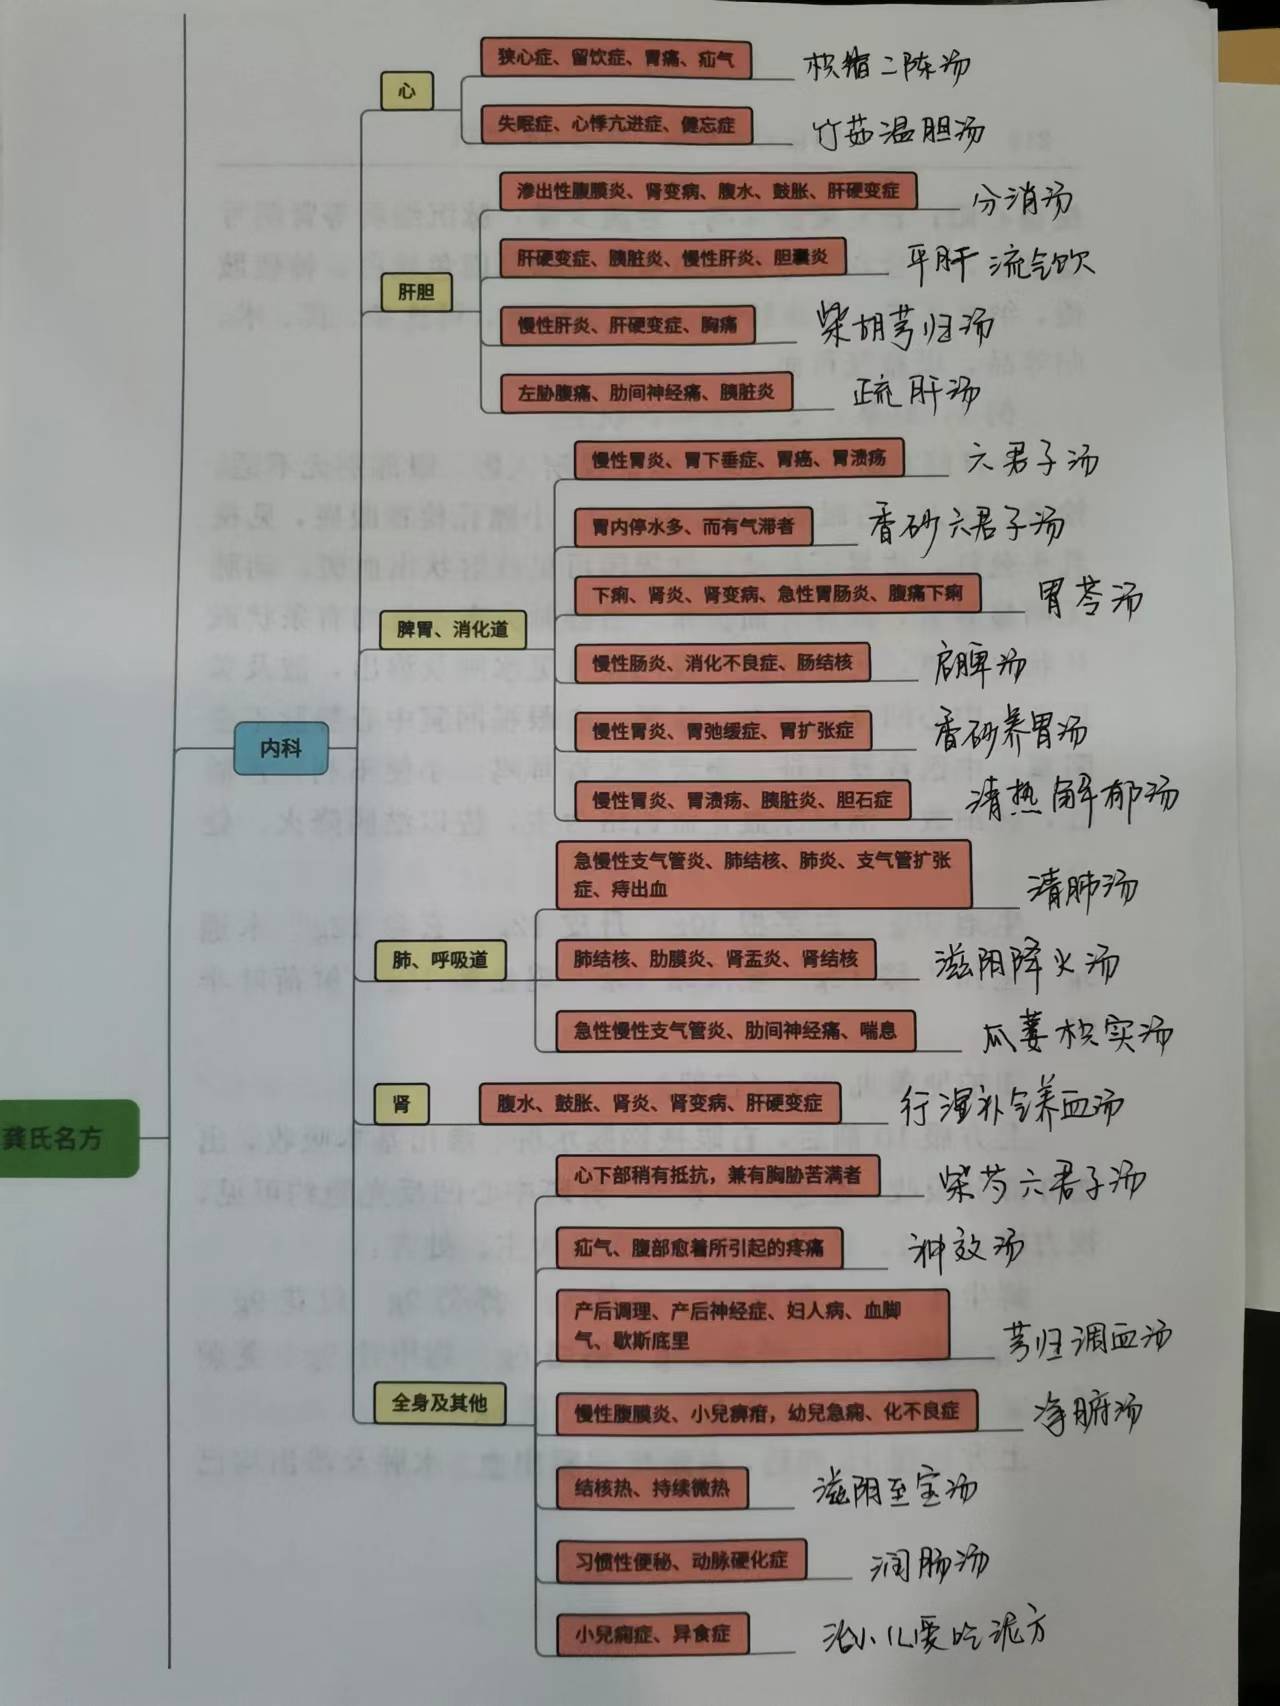 龚氏名方
内科
心
狭心症、留饮症、胃痛、疝气
枳缩二陈汤
失眠症、心悸亢进症、健忘症
竹茹温胆汤
肝胆
渗出性腹膜炎、肾变病、腹水、鼓胀、肝硬变症
分消汤
肝硬变症、胰脏炎、慢性肝炎、胆囊炎
平肝流气饮
慢性肝炎、肝硬变症、胸痛
柴胡芎归汤
左胁腹痛、肋间神经痛、胰脏炎
疏肝汤
脾胃、消化道
慢性胃炎、胃下垂症、胃癌、胃溃疡
六君子汤
胃内停水多、而有气滞者
香砂六君子汤
下痢、肾炎、肾变病、急性胃肠炎、腹痛下痢
胃苓汤
慢性肠炎、消化不良症、肠结核
启脾汤
慢性胃炎、胃弛缓症、胃扩张症
香砂养胃汤
慢性胃炎、胃溃疡、胰脏炎、胆石症
清热解郁汤
肺、呼吸道
急慢性支气管炎、肺结核、肺炎、支气管扩张
症、痔出血
清肺汤
肺结核、肋膜炎、肾盂炎、肾结核
滋阴降火汤
急性慢性支气管炎、肋间神经痛、喘息
瓜蒌枳实汤
肾
腹水、鼓胀、肾炎、肾变病、肝硬变症
行湿补气养血汤
全身及其他
心下部稍有抵抗，兼有胸胁苦满者
柴芍六君子汤
疝气、腹部愈着所引起的疼痛
神效汤
产后调理、产后神经症、妇人病、血脚
气、歇斯底里
芎归调血汤
慢性腹膜炎、小兒痹疳，幼兒急痫、化不良症
净腑汤
结核热、持续微热
滋阴至宝汤
习惯性便秘、动脉硬化症
润肠汤
小兒痫症、异食症
治小儿爱吃泥方